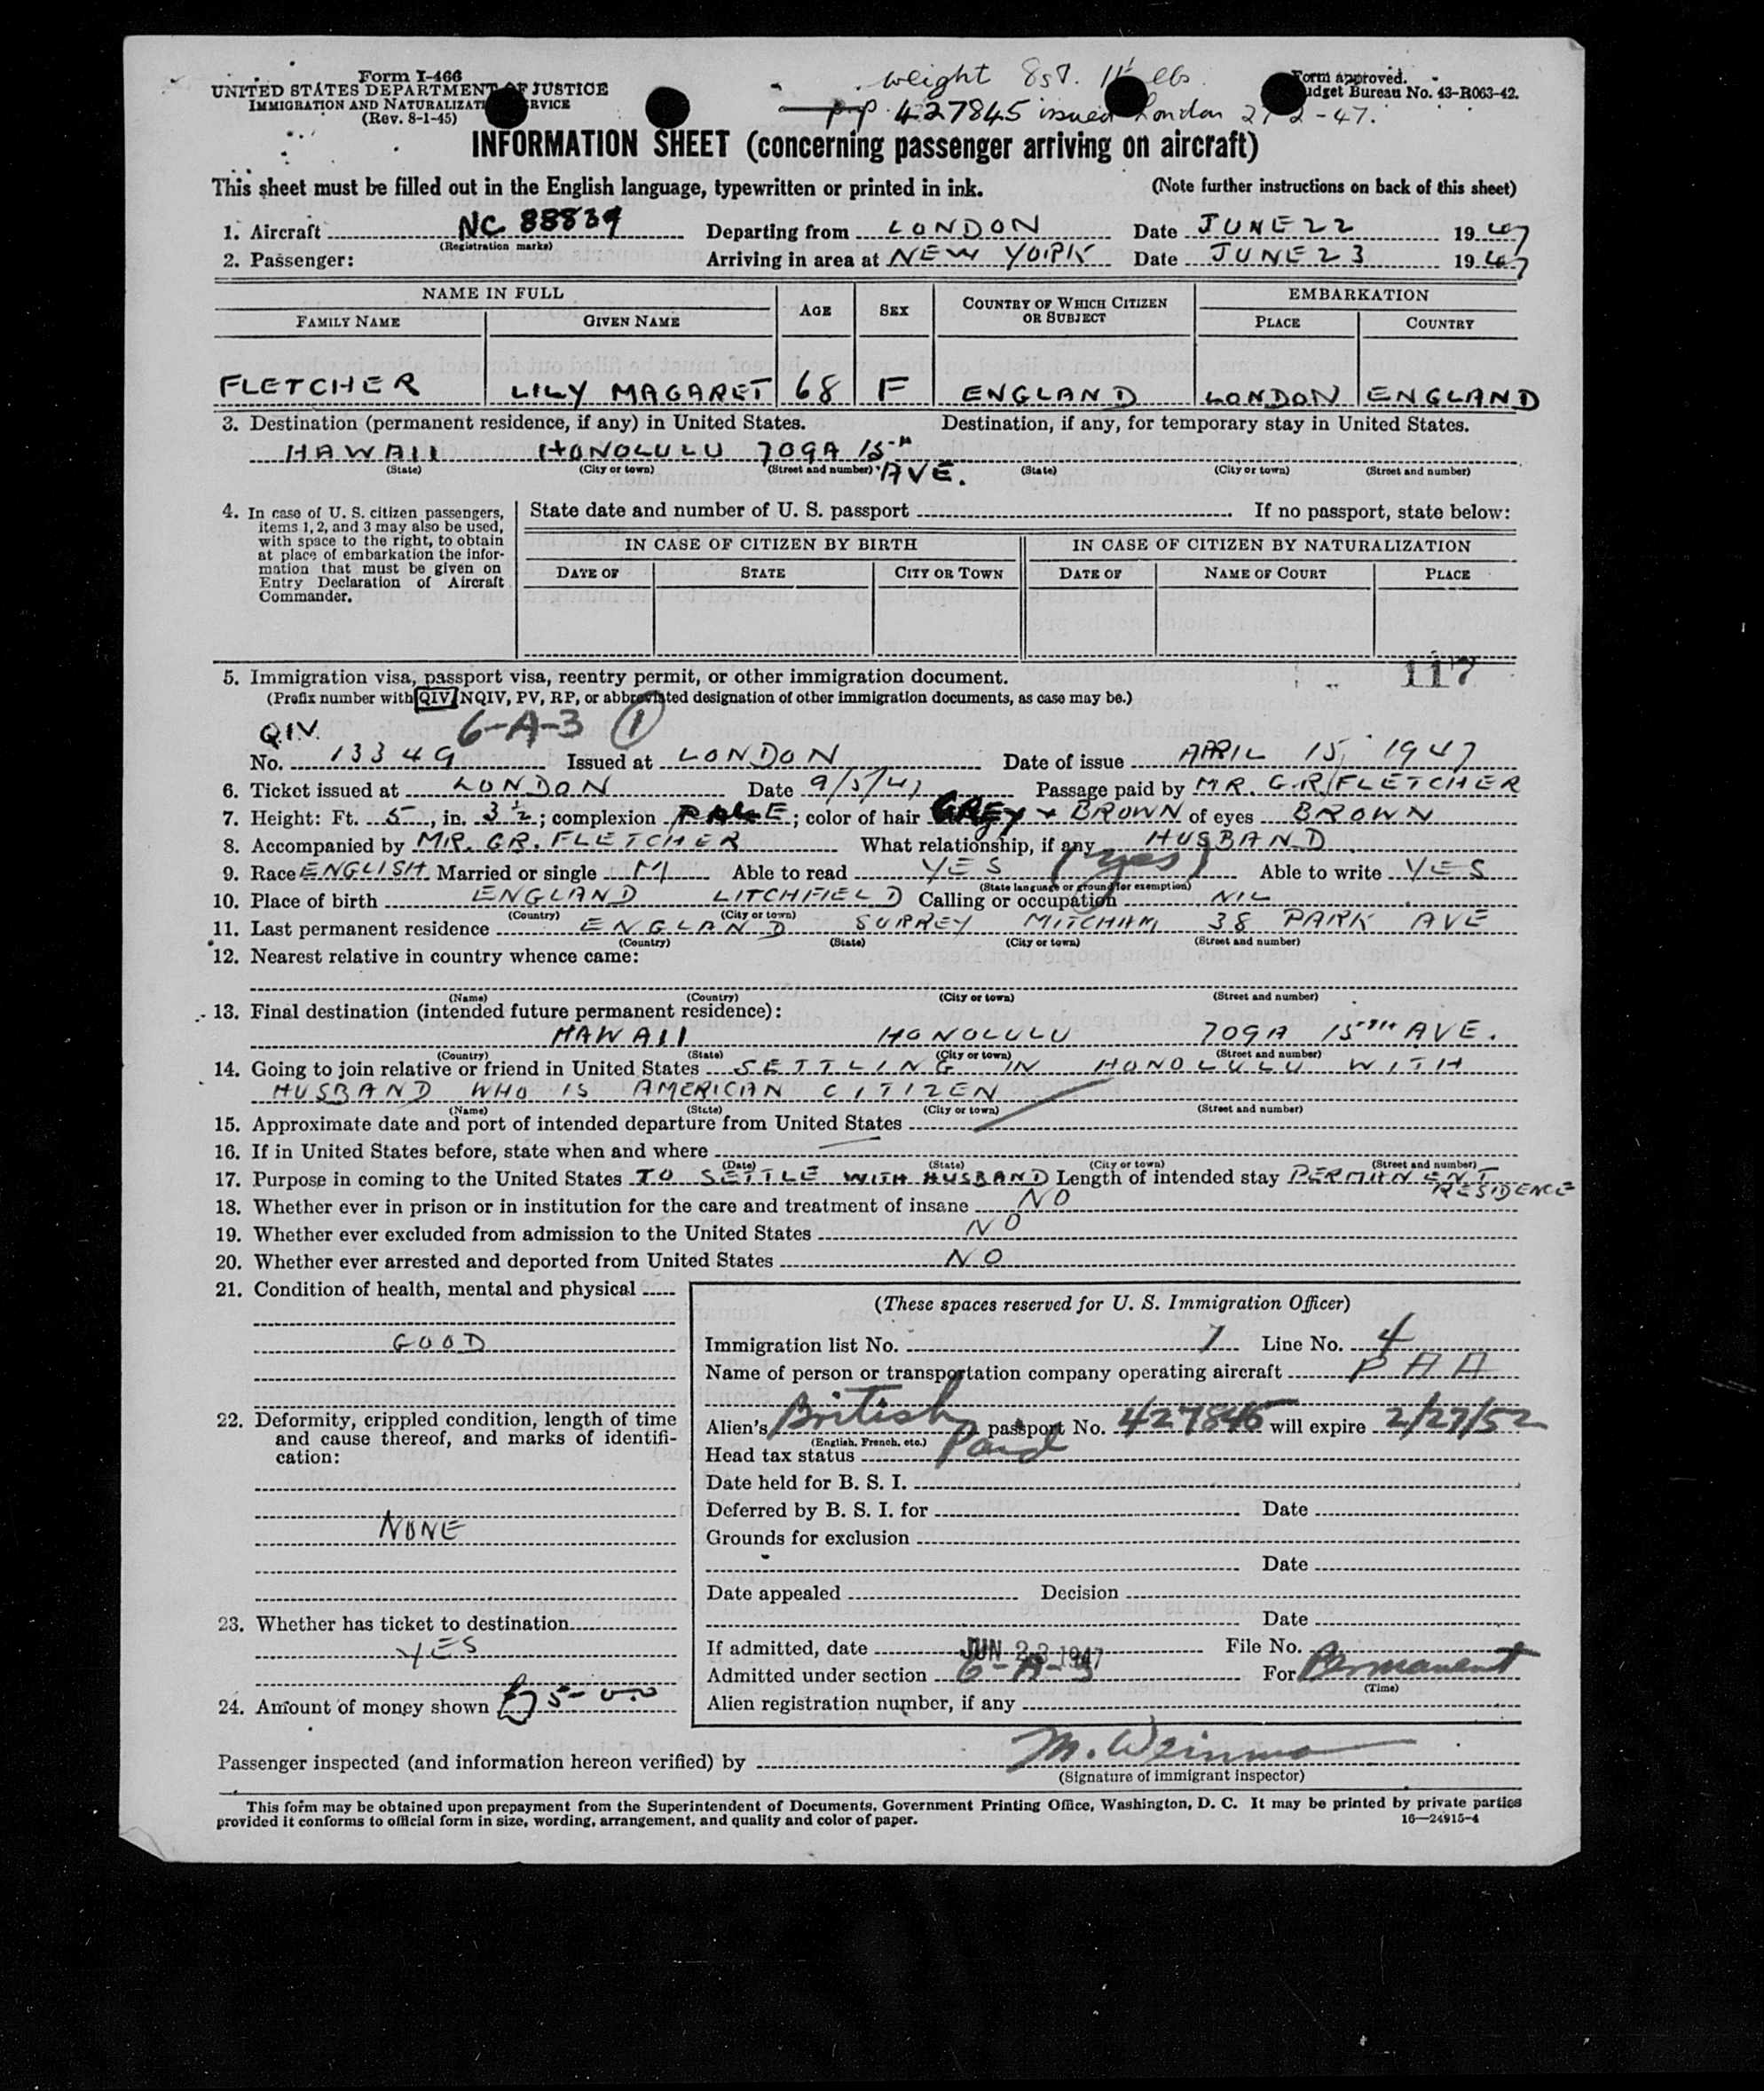 Form I-466
UNITED STATES DEPARTMENT OF JUSTICE
IMMIGRATION AND NATURALIZATI RVICE
(Rev. 8-1-45)
weight 8st. lbs.
427845 issued London 2 2-47.
Form approved.
udget Bureau No. 43-R063-42.
INFORMATION SHEET (concerning passenger arriving on aircraft)
This sheet must be filled out in the English language, typewritten or printed in ink. (Note further instructions on back of this sheet)
1. Aircraft NC 88839 Departing from LONDON Date JUNE 22 1947
(Registration marks)
2. Passenger: Arriving in area at NEW YORK Date JUNE 23 1947
NAME IN FULL AGE SEX COUNTRY OF WHICH CITIZEN OR SUBJECT EMBARKATION
FAMILY NAME GIVEN NAME PLACE COUNTRY
FLETCHER LILY MAGARET 68 F ENGLAND LONDON ENGLAND
3. Destination (permanent residence, if any) in United States. Destination, if any, for temporary stay in United States.
HAWAII HONOLULU 709A 15TH AVE.
(State) (City or town) (Street and number) (State) (City or town) (Street and number)
4. In case of U. S. citizen passengers,
items 1, 2, and 3 may also be used,
with space to the right, to obtain
at place of embarkation the infor-
mation that must be given on
Entry Declaration of Aircraft
Commander.
State date and number of U. S. passport If no passport, state below:
IN CASE OF CITIZEN BY BIRTH IN CASE OF CITIZEN BY NATURALIZATION
DATE OF STATE CITY OR TOWN DATE OF NAME OF COURT PLACE
117
5. Immigration visa, passport visa, reentry permit, or other immigration document.
(Prefix number with QIV, NQIV, PV, RP, or abbreviated designation of other immigration documents, as case may be.)
QIV. 6-A-3 1
No. 13349 Issued at LONDON Date of issue APRIL 15, 1947
6. Ticket issued at LONDON Date 9/5/47 Passage paid by MR. G.R. FLETCHER
7. Height: Ft. 5, in. 3½; complexion PALE; color of hair GREY + BROWN of eyes BROWN
8. Accompanied by MR. G.R. FLETCHER What relationship, if any HUSBAND
9. Race ENGLISH Married or single M Able to read YES (yes) Able to write YES
(State language or ground for exemption)
10. Place of birth ENGLAND LITCHFIELD Calling or occupation NIL
(Country) (City or town)
11. Last permanent residence ENGLAND SURREY MITCHAM 38 PARK AVE
(Country) (State) (City or town) (Street and number)
12. Nearest relative in country whence came:
(Name) (Country) (City or town) (Street and number)
13. Final destination (intended future permanent residence):
HAWAII HONOLULU 709A 15TH AVE.
(Country) (State) (City or town) (Street and number)
14. Going to join relative or friend in United States SETTLING IN HONOLULU WITH
HUSBAND WHO IS AMERICAN CITIZEN
(Name) (State) (City or town) (Street and number)
15. Approximate date and port of intended departure from United States
16. If in United States before, state when and where
(Date) (State) (City or town) (Street and number)
17. Purpose in coming to the United States TO SETTLE WITH HUSBAND Length of intended stay PERMANENT RESIDENCE
18. Whether ever in prison or in institution for the care and treatment of insane NO
19. Whether ever excluded from admission to the United States NO
20. Whether ever arrested and deported from United States NO
21. Condition of health, mental and physical
GOOD
22. Deformity, crippled condition, length of time
and cause thereof, and marks of identifi-
cation:
NONE
23. Whether has ticket to destination
YES
24. Amount of money shown
(These spaces reserved for U. S. Immigration Officer)
Immigration list No. 1 Line No. 4
Name of person or transportation company operating aircraft PAA
Alien's British passport No. 427845 will expire 2/27/52
(English, French, etc.)
Head tax status Paid
Date held for B. S. I.
Deferred by B. S. I. for Date
Grounds for exclusion
Date
Date appealed Decision
Date
If admitted, date JUN 23 1947 File No.
Admitted under section 6-A-3 For Permanent
(Time)
Alien registration number, if any
Passenger inspected (and information hereon verified) by M.
(Signature of immigrant inspector)
This form may be obtained upon prepayment from the Superintendent of Documents, Government Printing Office, Washington, D. C. It may be printed by private parties
provided it conforms to official form in size, wording, arrangement, and quality and color of paper. 16—24915-4